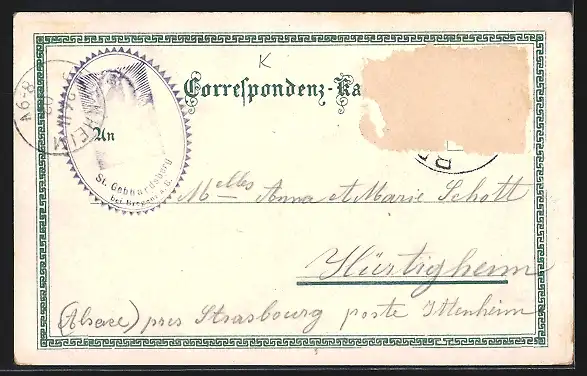 K
Correspondenz-Ka
An
St. Gebhardsberg
bei Bregenz a. B.
Melles Anna & Marie Schott
Hürtigheim
(Alsace) pres Strasbourg poste Ittenheim